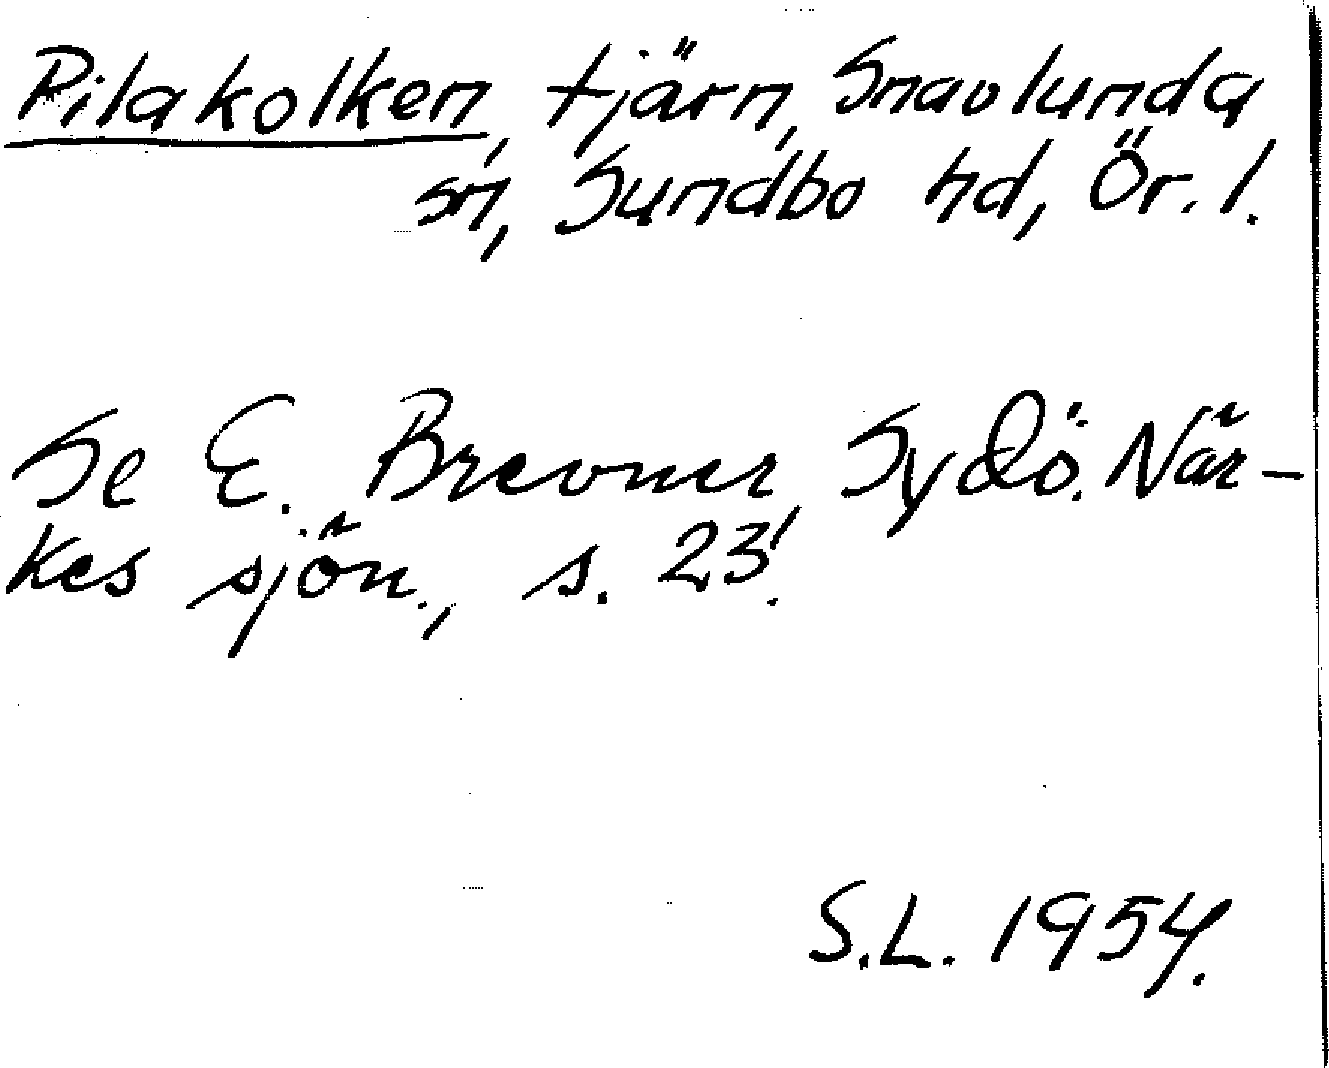 Pilakolken, tjärn, Snavlunda
sn, Sundbo hd, Ör. l.
Se E. Brevner, Sydö. När-
kes sjön., s. 23!
S.L. 1954.